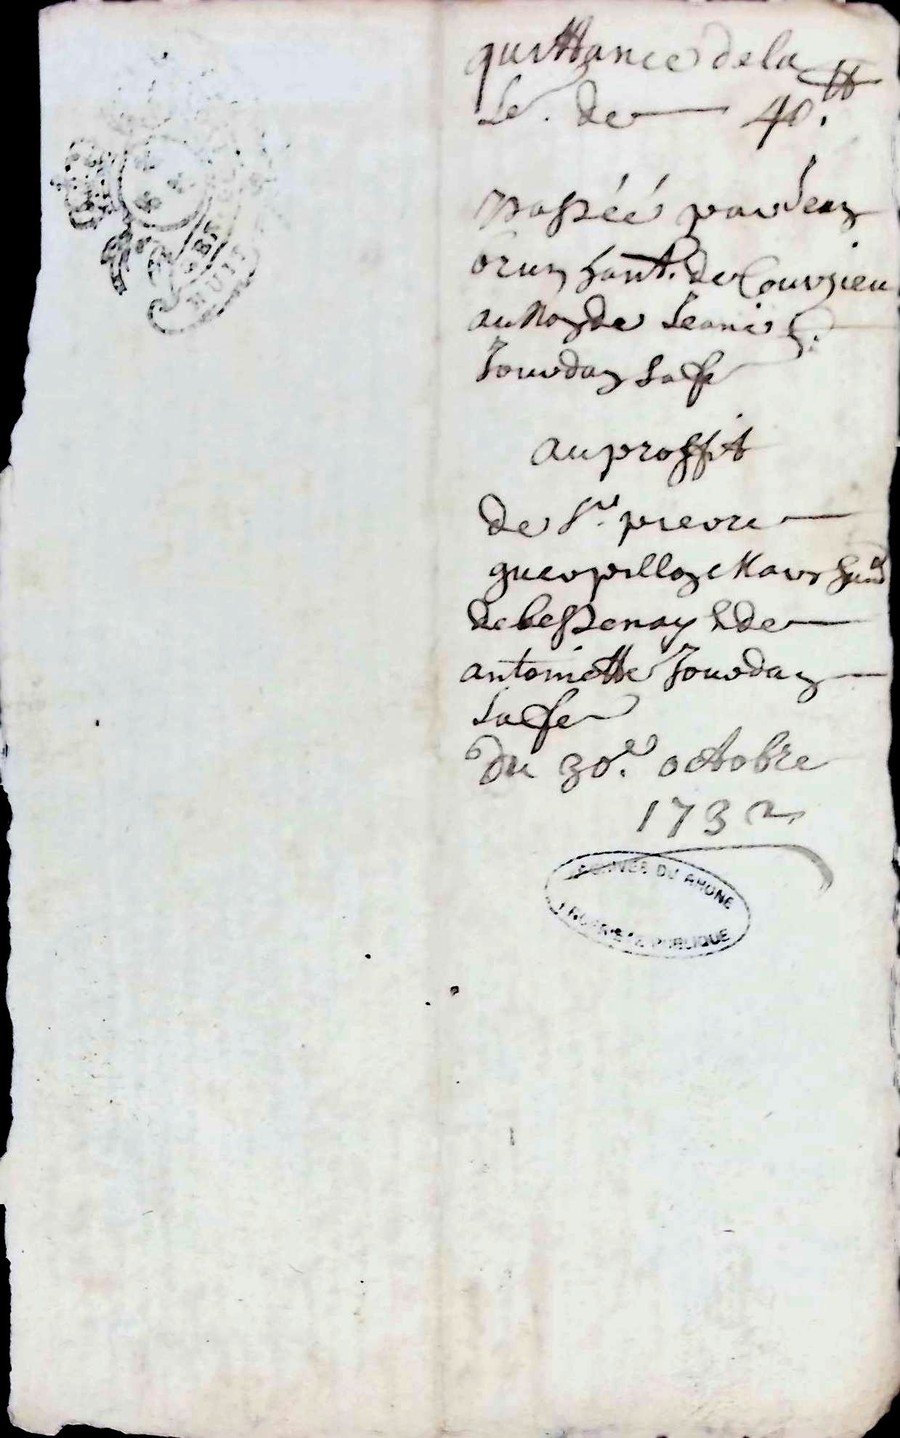 quittance de la
Se. de 40.tt
passéé par Jean
brun hant. de Courzieu
au Nom de
Jourdan sa fe
au proffit
de Sr. pierre
guerpillon Marchand
de bessenay & de
antoinette Jourdan
sa fe
du 30.e octobre
1732
ARCHIVES DU RHONE
PUBLIQUE